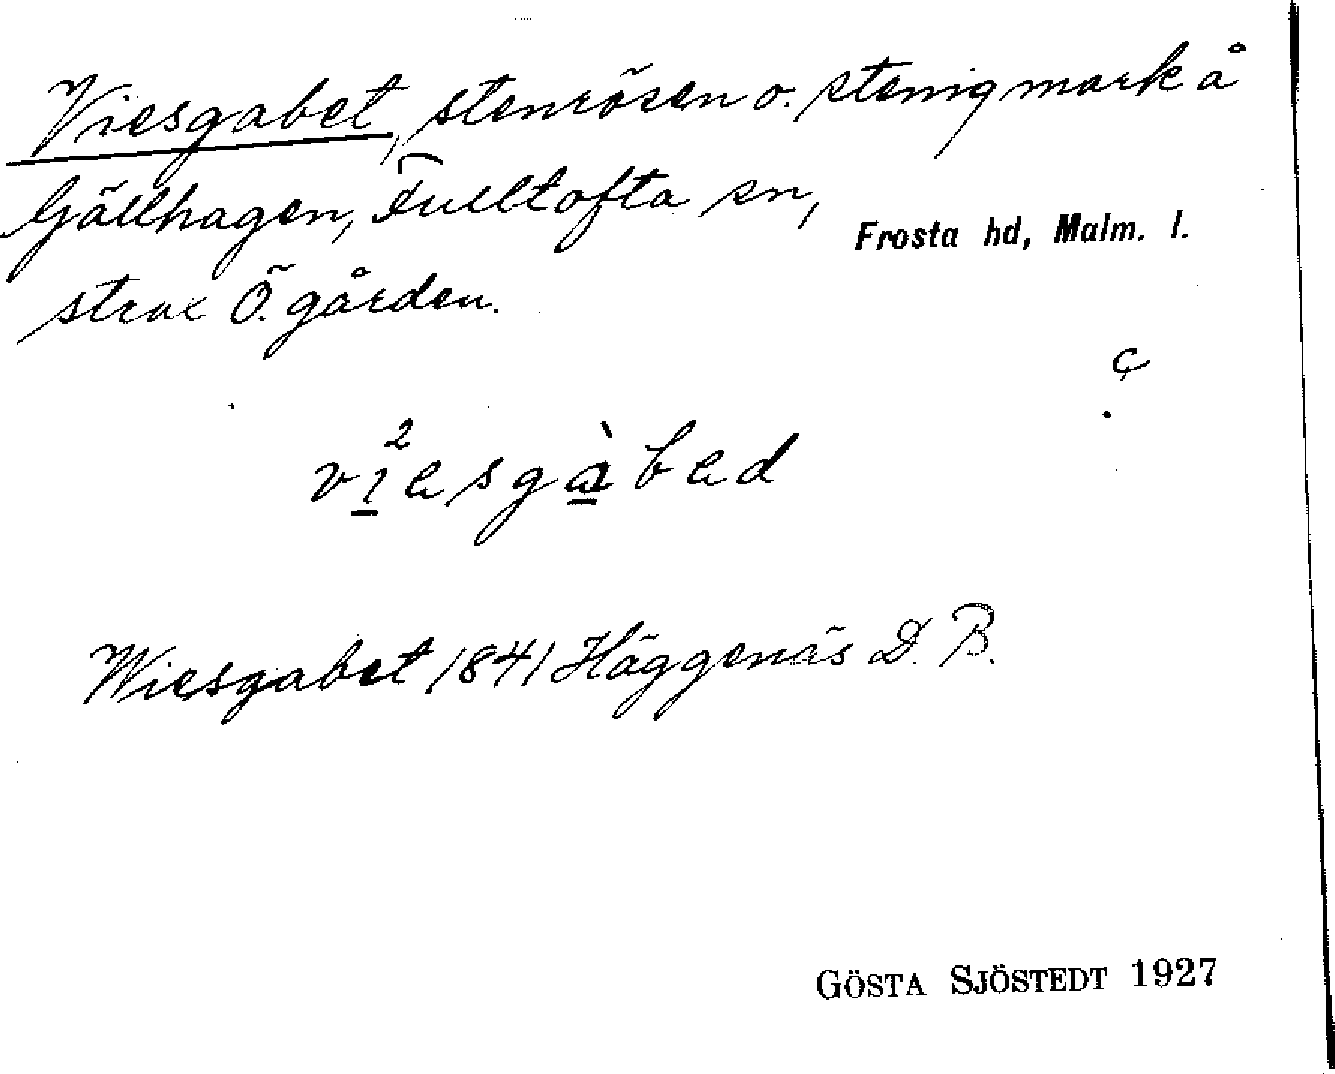 Viesgabet, stenrösen o. stenig mark å
Gällhagen, Fulltofta sn, Frosta hd, Malm. l.
strax Ö. gården.
ç
vi²esgàbed
Wiesgabet 1841 Häggenäs D. B.
GÖSTA SJÖSTEDT 1927